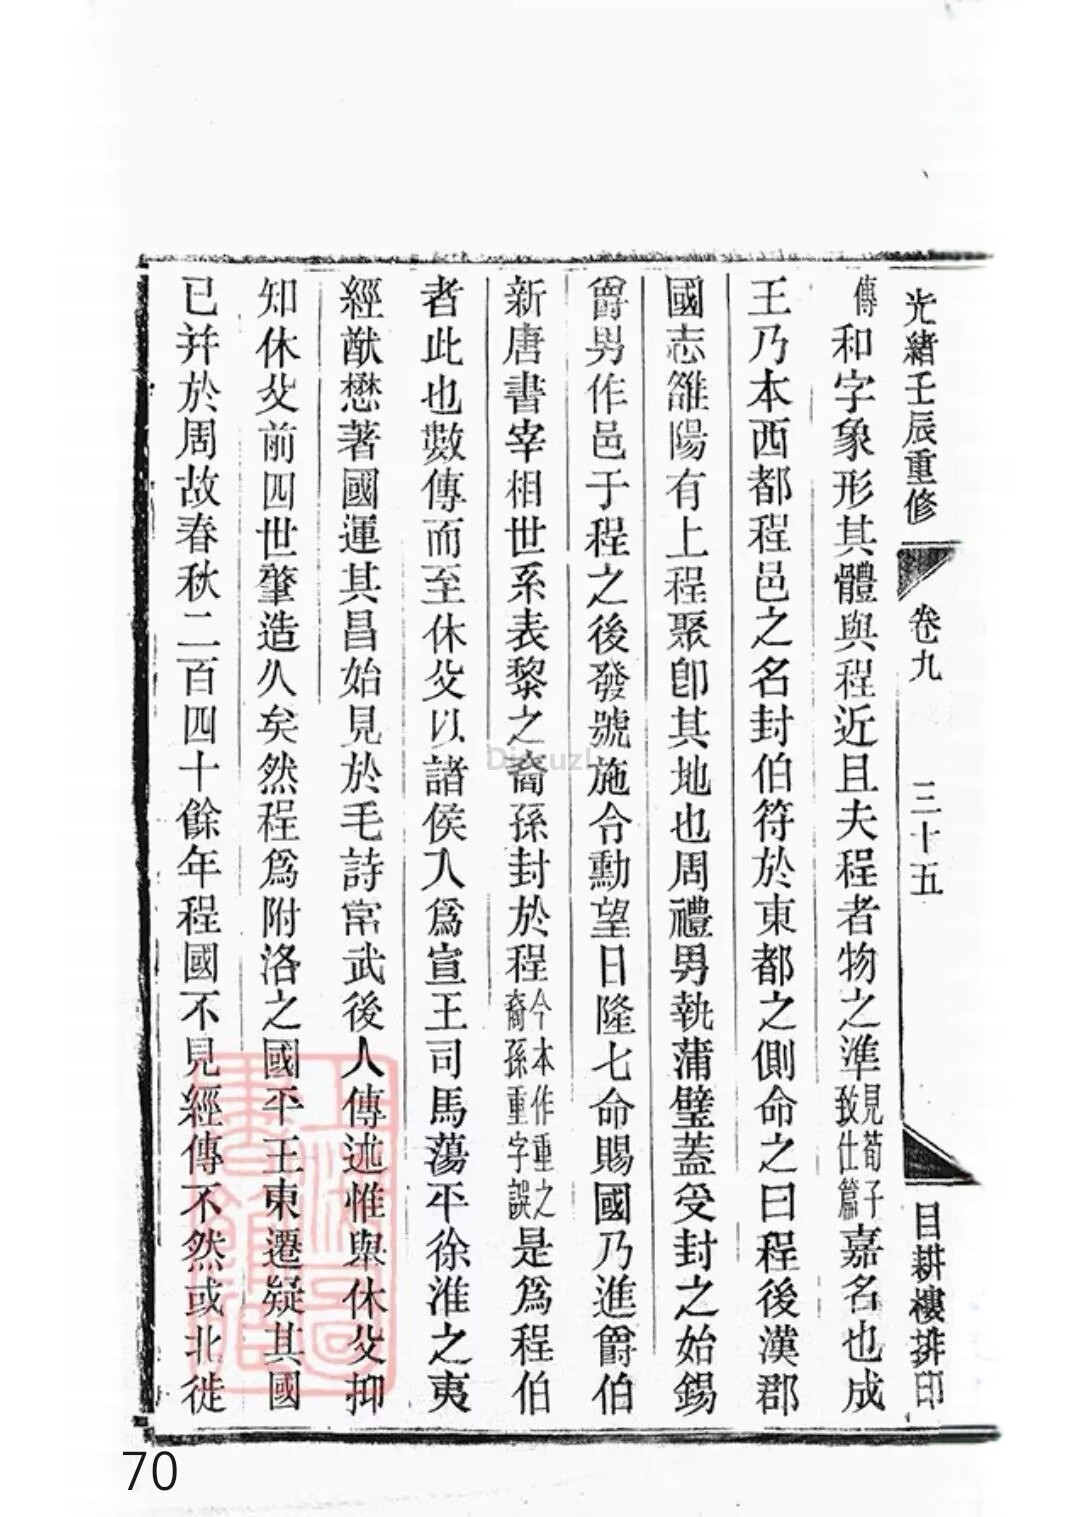 光緒壬辰重修
卷九
三十五
目耕樓排印
傳和字象形其體與程近且夫程者物之準見荀子致仕篇嘉名也成
王乃本西都程邑之名封伯符於東都之側命之曰程後漢郡
國志雒陽有上程聚卽其地也周禮男執蒲璧蓋受封之始錫
爵男作邑于程之後發號施令勳望日隆七命賜國乃進爵伯
新唐書宰相世系表黎之裔孫封於程今本作重之裔孫重字誤是爲程伯
者此也數傳而至休父以諸侯入爲宣王司馬蕩平徐淮之夷
經猷懋著國運其昌始見於毛詩常武後人傳述惟與休父抑
知休父前四世肇造久矣然程爲附洛之國平王東遷疑其國
已并於周故春秋二百四十餘年程國不見經傳不然或北徙
上海圖書館藏
70